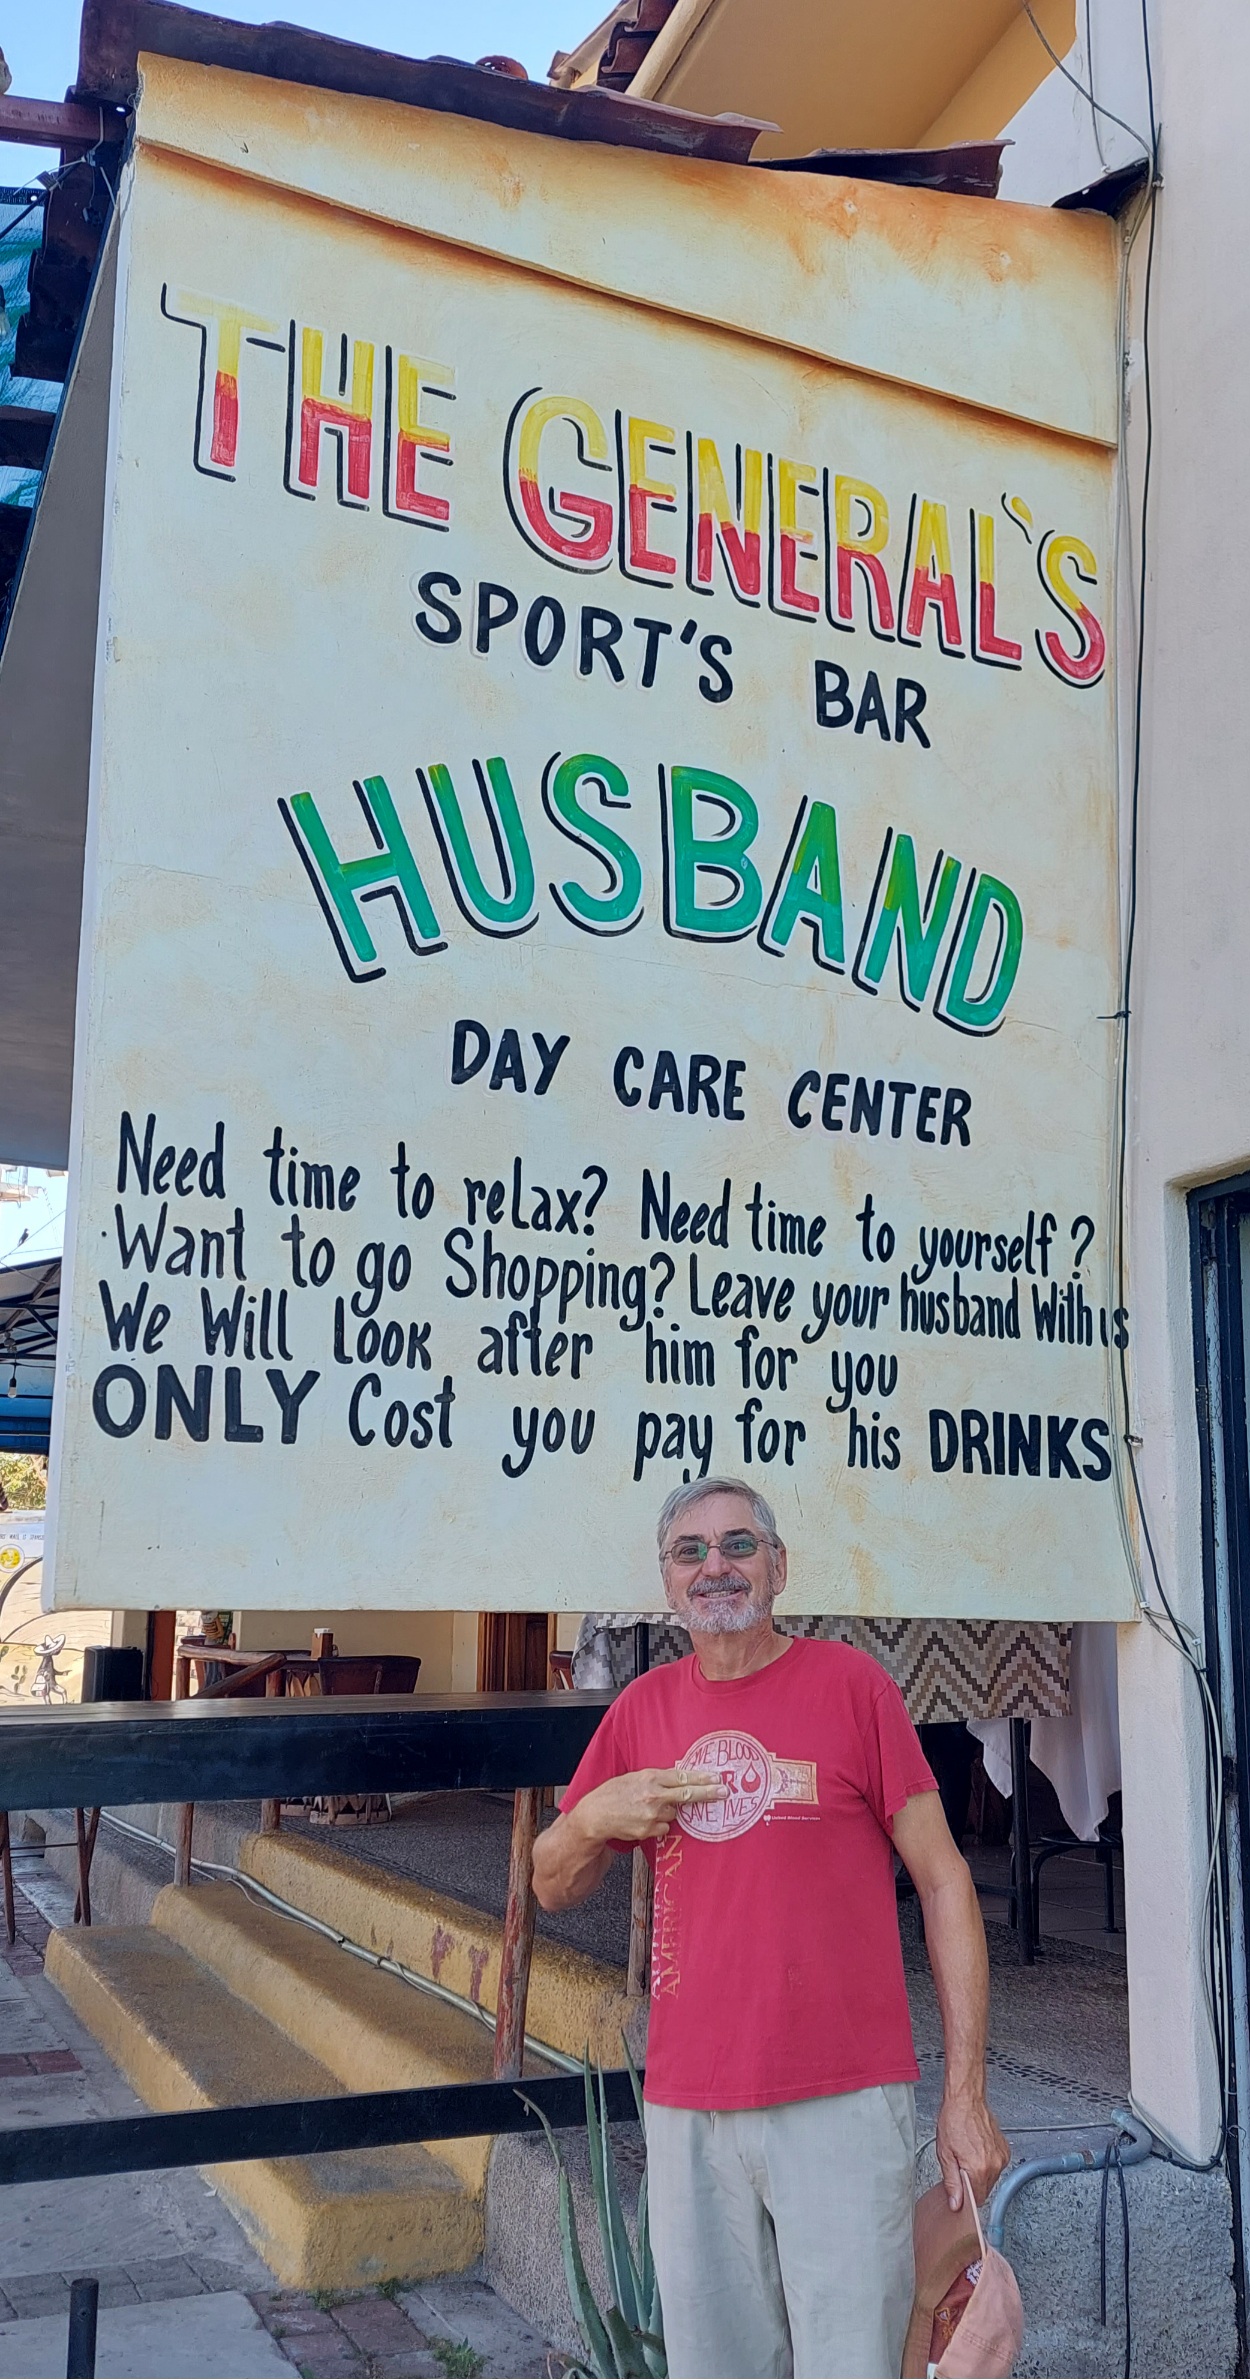 THE GENERAL`S
SPORT'S BAR
HUSBAND
DAY CARE CENTER
Need time to relax? Need time to yourself?
Want to go Shopping? Leave your husband With us
We Will Look after him for you
ONLY Cost you pay for his DRINKS
GIVE BLOOD
SAVE LIVES
United Blood Services
AMERICAN